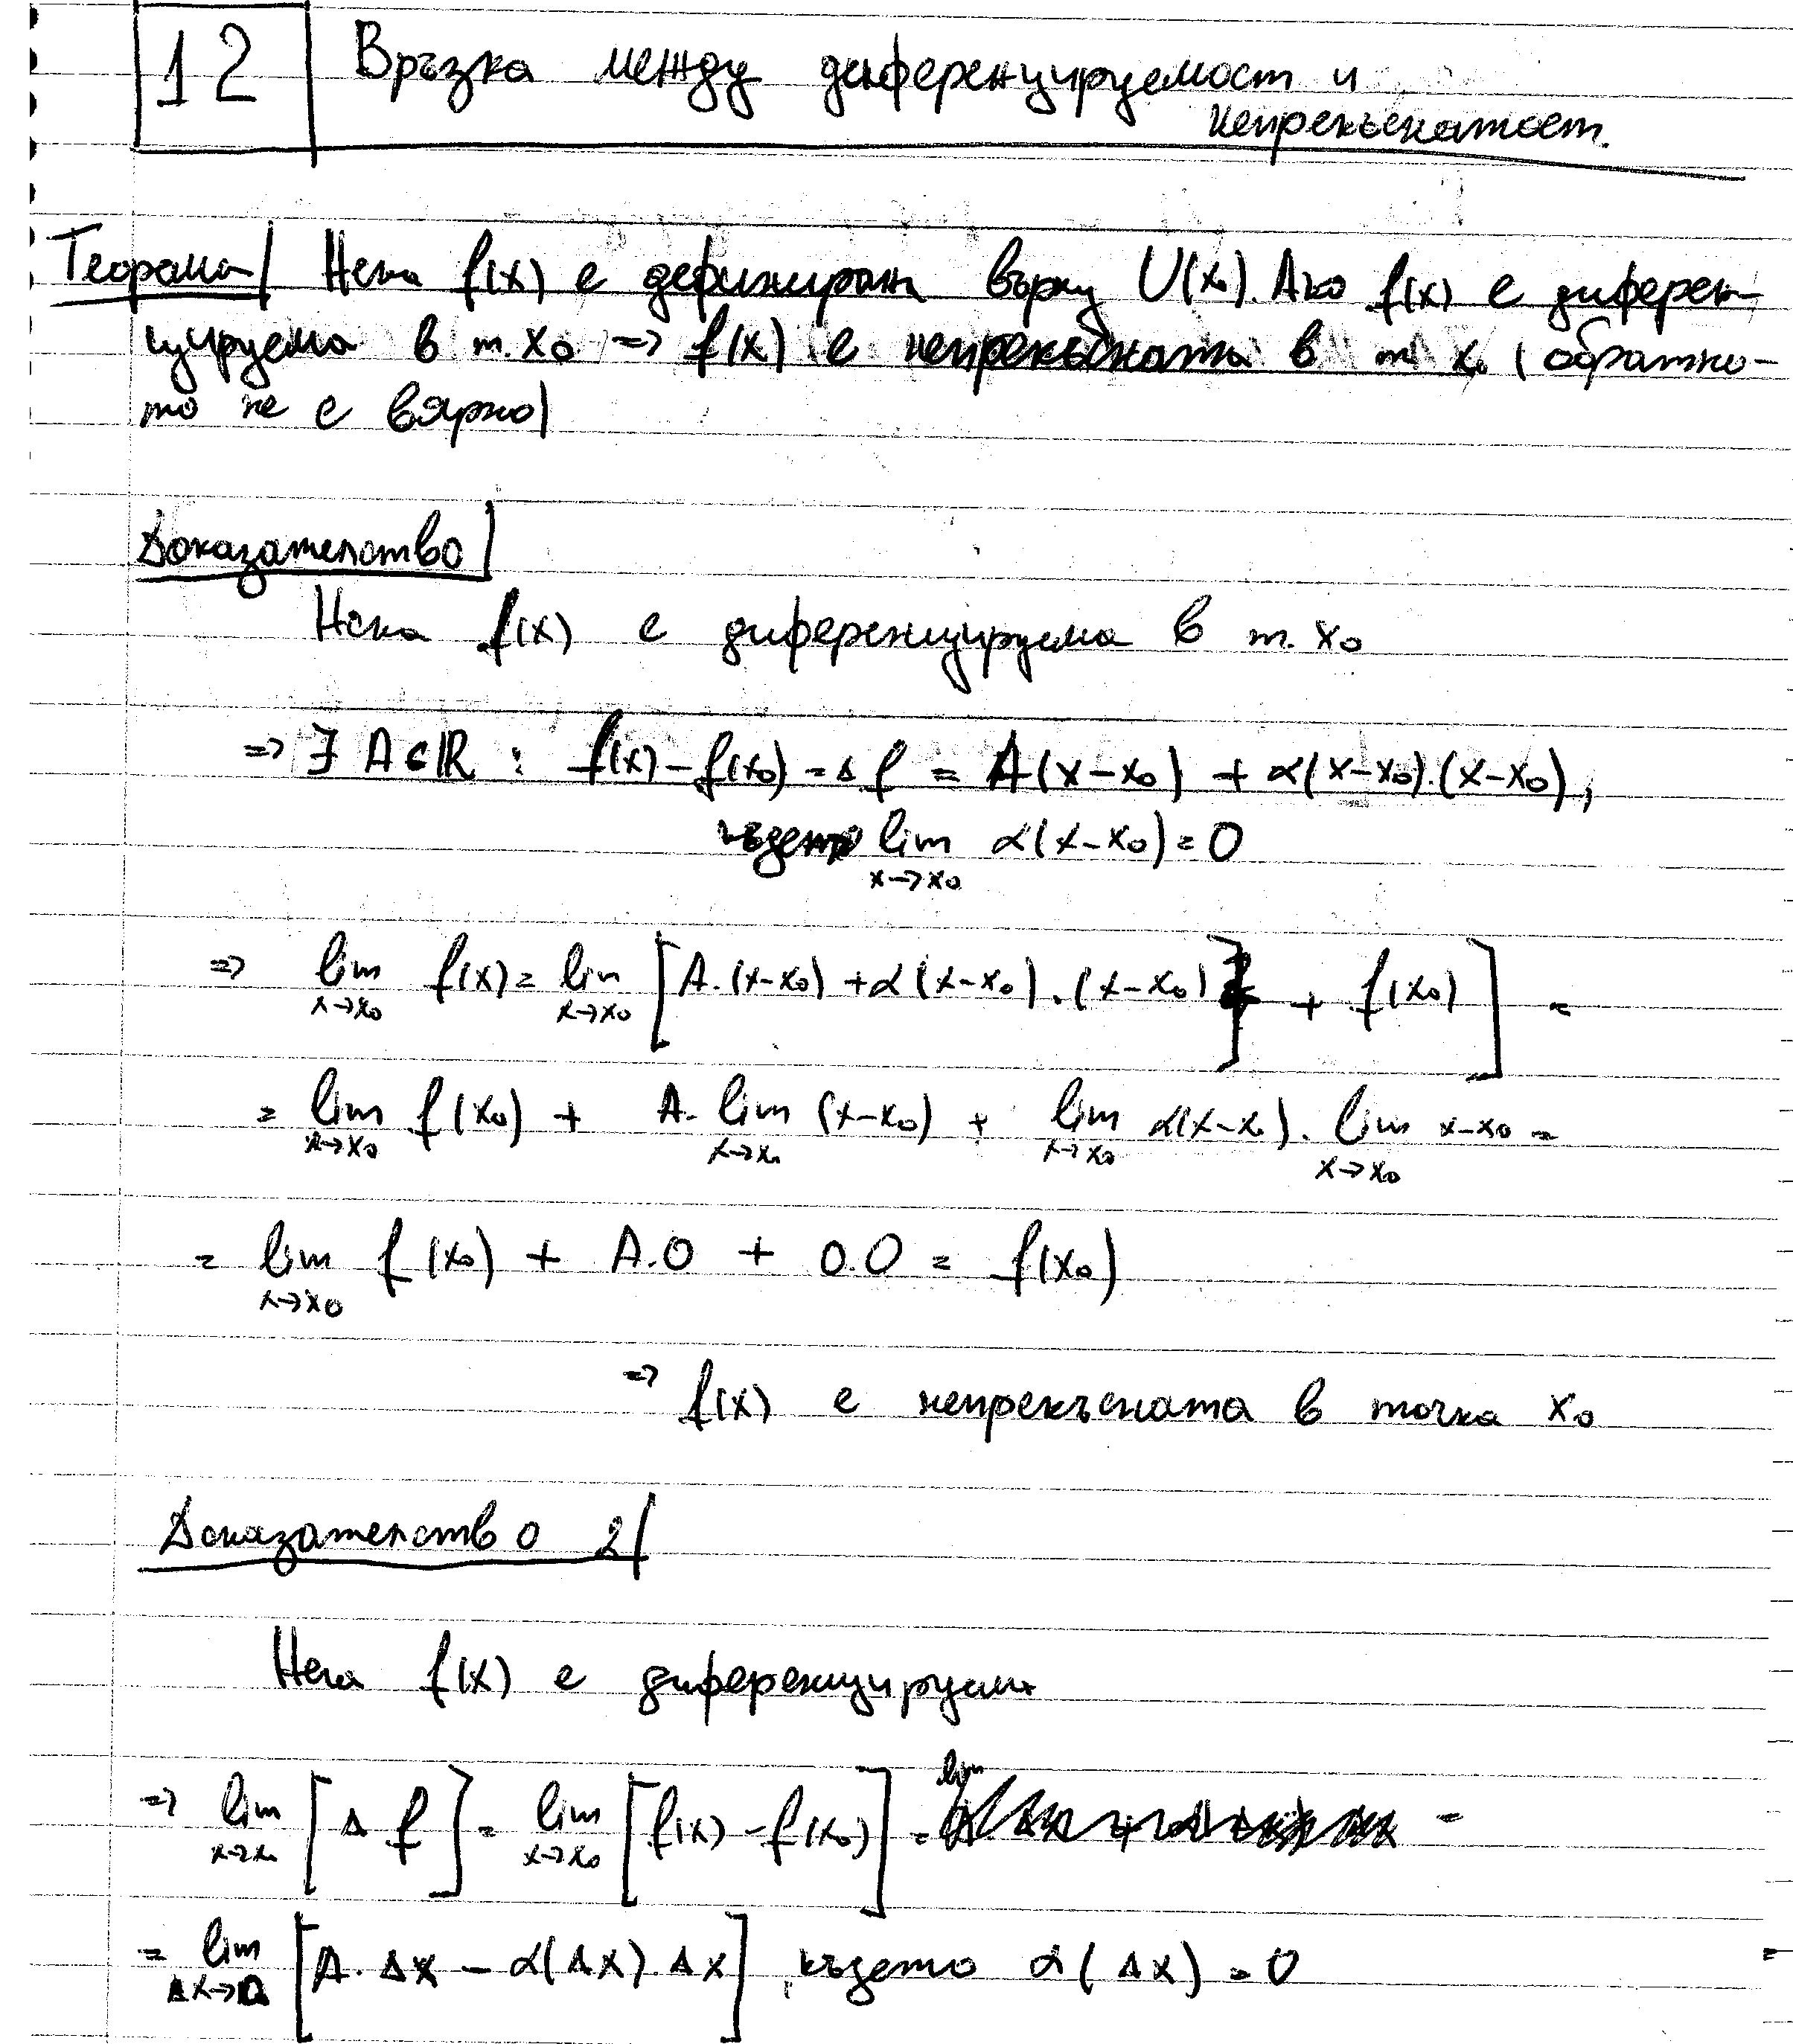 12 Връзка между диференцируемост и
непрекъснатост.
Теорема/ Нека f(x) е дефинирана върху U(x₀). Ако f(x) е диферен-
цируема в т. x₀ => f(x) е непрекъсната в т x₀ (обратно-
то не е вярно)
Доказателство
Нека f(x) е диференцируема в т. x₀
=> ∃ A∈ℝ : f(x)-f(x₀) = Δf = A(x-x₀) + α(x-x₀).(x-x₀),
където lim α(x-x₀)=0
x→x₀
=> lim f(x) = lim [A.(x-x₀) + α(x-x₀).(x-x₀)] + f(x₀)] =
x→x₀ x→x₀
= lim f(x₀) + A. lim (x-x₀) + lim α(x-x₀). lim x-x₀ =
x→x₀ x→x₀ x→x₀ x→x₀
= lim f(x₀) + A.0 + 0.0 = f(x₀)
x→x₀
=> f(x) е непрекъсната в точка x₀
Доказателство 2/
Нека f(x) е диференцируема
=> lim [Δf] = lim [f(x)-f(x₀)] = lim =
x→x₀ x→x₀
= lim [A.Δx - α(Δx).Δx], където α(Δx) = 0 =
Δx→0